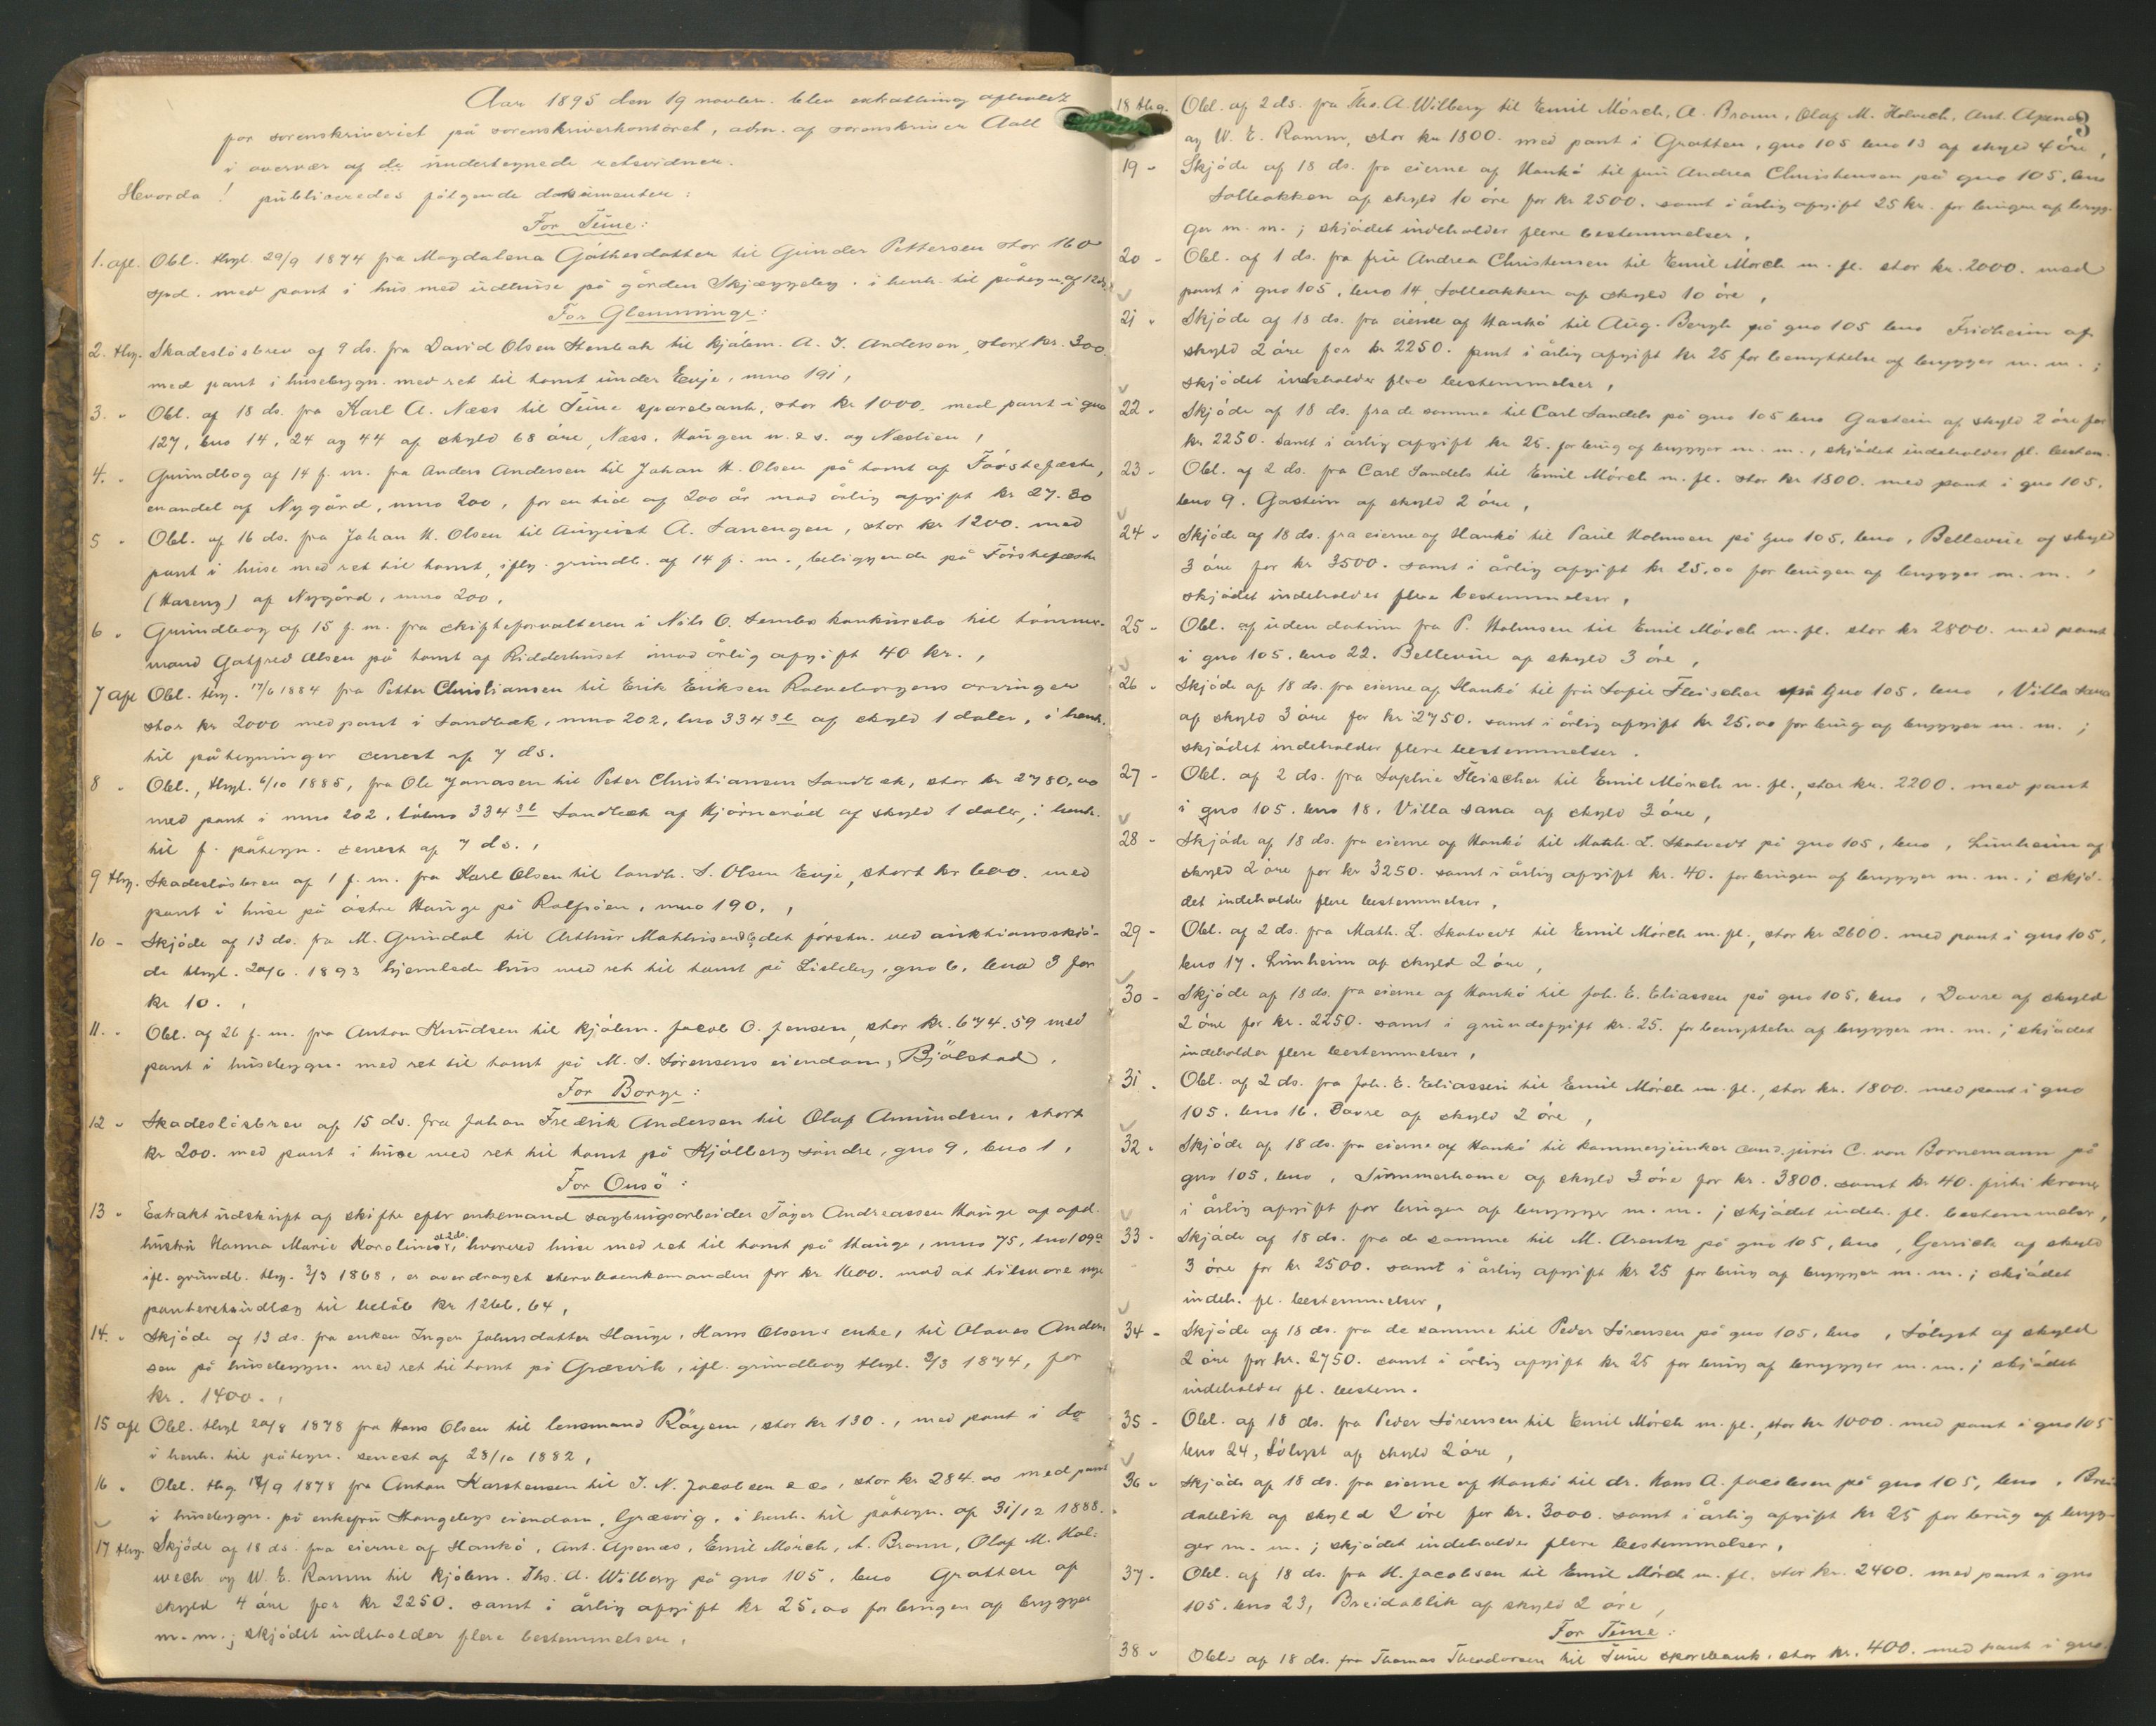 Aar 1895 den 19 novbr. blev extratthing afholdt
for sorenskriveriet på sorenskriverkontoret, adm. af sorenskriver Aall
i overvær af de undertegnede retsvidner.
Hvorda! publiceredes følgende dokumenter:
For Tune:
1. afl. Obl. thgl. 29/9 1874 fra Magdalena Gåthesdatter til Gunder Pettersen stor 160
spd. med pant i hus med udhuse på gården Skjæggeby. i henh. til påtegn. af 12 ds.
For Glemminge:
2. thg. Skadesløsbrev af 9 ds. fra David Olsen Stenbæk til kjøbm. A. J. Andersen, stort kr. 300.
med pant i husebygn. med ret til tomt under Evje, mno 191,
3. " Obl. af 18 ds. fra Karl A. Næss til Tune sparebank, stor kr 1000. med pant i gno
127, bno 14, 24 og 44 af skyld 68 øre, Næss, Haugen n. & s. og Næslien,
4. " Grundbog af 14 f. m. fra Anders Andersen til Johan H. Olsen på tomt af Førstefæste,
en andel af Nygård, mno 200, for en tid af 200 år mod årlig afgift kr 27.80
5 " Obl. af 16 ds. fra Johan H. Olsen til August A. Tanengen, stor kr 1200. med
pant i huse med ret til tomt, iflg. grundb. af 14 f. m., beliggende på Førstefæste
(Haseng) af Nygård, mno 200,
6 " Grundbog af 15 f. m. fra skifteforvalteren i Nils O. Sembs konkursbo til tømmer-
mand Gotfred Olsen på tomt af Ridderhuset imod årlig afgift 40 kr.,
7 afl Obl. thg. 17/6 1884 fra Petter Christiansen til Erik Eriksen Rolvsborgens arvinger
stor kr 2000 med pant i Sandbæk, mno 202, lno 334 3 b af skyld 1 daler, i henh.
til påtegninger senest af 7 ds.
8 " Obl., thgl. 6/10 1885, fra Ole Jonasen til Peter Christiansen Sandbæk, stor kr 2780,00
med pant i mno 202, løbno 334 3 b Sandbæk af Hjørnerød af skyld 1 daler, i henh.
til f. påtegn. senest af 7 ds.,
9 thg. Skadesløsbrev af 1 f. m. fra Karl Olsen til landh. S. Olsen Evje, stort kr 600. med
pant i huse på østre Hauge på Rolfsøen, mno 190.,
10 - Skjøde af 13 ds. fra M. Grindal til Arthur Mathisen på det førstn. ved auktionsskjø-
de thgl. 20/6. 1893 hjemlede hus med ret til tomt på Lisleby, gno 6, bno 3 for
kr 10.,
11. " Obl. af 26 f. m. fra Anton Knudsen til kjøbm. Jacob O. Jensen, stor kr. 674.59 med
pant i husebygn. med ret til tomt på M. S. Sørensens eiendom, Bjølstad.
For Borge:
12 " Skadesløsbrev af 15 ds. fra Johan Fredrik Andersen til Olaf Amundsen, stort
kr 200. med pant i huse med ret til tomt på Kjølberg søndre, gno 9, bno 1,
For Onsø:
13 " Extraktudskrift af skifte efter enkemand sagbrugsarbeider Tøger Andreassen Hauge af afd.
hustru Hanna Marie Karoline af 2 ds., hvorved huse med ret til tomt på Hauge, mno 75, lno 109 a
ifl. grundb. thg. 2/3 1868, er overdraget stervboenkemanden for kr 1600. mod at tilsvare nye
panteretsudlæg til beløb kr 1266.64,
14. " Skjøde af 13 ds. fra enken Inger Johnsdatter Hauge, Hans Olsens enke, til Olaves Ander-
sen på husebygn. med ret til tomt på Græsvik, ifl. grundbog thgl. 2/3 1874, for
kr. 1400.,
15 afl Obl. thgl 20/8 1878 fra Hans Olsen til lensmand Røyem, stor kr 130., med pant i do
i henh. til påtegn. senest af 28/10 1882,
16. " Obl. thg 17/9 1878 fra Anton Karstensen til J. N. Jacobsen & co, stor kr 284.00 med pant
i husebygn. på enkefru Hangebys eiendom, Græsvig, i henh. til påtegn. af 31/12 1888.
17 thg. Skjøde af 18 ds. fra eierne af Hankø, Ant. Apenæs, Emil Mørch, A. Braun, Olaf M. Hol-
wech og W. E. Ramm til kjøbm. Ths. A. Wilberg på gno 105, bno Gratten af
skyld 4 øre for kr 2250. samt i årlig afgift kr 25,00 for brugen af brygger
m. m.; skjødet indeholder flere bestemmelser,
3
18 thg. Obl. af 2 ds. fra Ths. A. Wilberg til Emil Mørch, A. Braun, Olaf M. Holvech, Ant. Apenæs
og W. E. Ramm, stor kr 1800. med pant i Gratten, gno 105 bno 13 af skyld 4 øre,
19 - Skjøde af 18 ds. fra eierne af Hankø til fru Andrea Christensen på gno 105, bno
Solbakken af skyld 10 øre for kr 2500. samt i årlig afgift 25 kr. for brugen af bryg-
ger m. m.; skjødet indeholder flere bestemmelser,
20 - Obl. af 1 ds. fra fru Andrea Christensen til Emil Mørch m. fl. stor kr. 2000. med
pant i gno 105, bno 14 Solbakken af skyld 10 øre,
21 " Skjøde af 18 ds. fra eierne af Hankø til Aug. Bergh på gno 105 bno Fridheim af
skyld 2 øre for kr 2250. samt i årlig afgift kr 25 for benyttelse af brygger m. m.;
skjødet indeholder flere bestemmelser,
22 - Skjøde af 18 ds. fra de samme til Carl Sandels på gno 105 bno Gastein af skyld 2 øre for
kr. 2250. samt i årlig afgift kr 25. for brug af brygger m. m., skjødet indeholder fl. bestem.
23 - Obl. af 2 ds. fra Carl Sandels til Emil Mørch m. fl. stor kr 1800. med pant i gno 105,
bno 9. Gastein af skyld 2 øre,
24 - Skjøde af 18 ds. fra eierne af Hankø til Paul Holmsen på gno 105, bno, Bellevue af skyld
3 øre for kr 3500. samt i årlig afgift kr 25.00 for brugen af brygger m. m.,
skjødet indeholder flere bestemmelser,
25 - Obl. af uden datum fra P. Holmsen til Emil Mørch m. fl. stor kr 2800. med pant
i gno 105. bno 22. Bellevue af skyld 3 øre,
26 - Skjøde af 18 ds. fra eierne af Hankø til fru Sofie Fleischer på gno 105, bno, Villa Sana
af skyld 3 øre for kr 2750. samt i årlig afgift kr 25.00 for brug af brygger m. m.;
skjødet indeholder flere bestemmelser.
27 - Obl. af 2 ds. fra Sophie Fleischer til Emil Mørch m. fl., stor kr. 2200. med pant
i gno 105. bno 18. Villa sana af skyld 3 øre,
28 - Skjøde af 18 ds. fra eierne af Hankø til Math. L. Skatvedt på gno 105, bno, Lunheim af
skyld 2 øre for kr 3250. samt i årlig afgift kr. 40. for brugen af brygger m. m.; skjø-
det indeholder flere bestemmelser,
29 - Obl. af 2 ds. fra Math. L. Skatvedt til Emil Mørch m. fl., stor kr 2600. med pant i gno 105,
bno 17. Lunheim af skyld 2 øre,
30 - Skjøde af 18 ds. fra eierne af Hankø til Joh. E. Eliassen på gno 105, bno, Dovre af skyld
2 øre for kr. 2250. samt i grundafgift kr. 25. for benyttelse af brygger m. m.; skjødet
indeholder flere bestemmelser,
31 - Obl. af 2 ds. fra Joh. E. Eliassen til Emil Mørch m. fl., stor kr. 1800. med pant i gno
105. bno 16. Dovre af skyld 2 øre,
32 - Skjøde af 18 ds. fra eierne af Hankø til kammerjunker cand. juris C. von Bornemann på
gno 105, bno, Summerhome af skyld 3 øre for kr. 3800. samt kr 40. firti kroner
i årlig afgift for brugen af brygger m. m.; skjødet indeh. fl. bestemmelser,
33 - Skjøde af 18 ds. fra de samme til M. Arentz på gno 105, bno, Gersich af skyld
3 øre for kr 2500. samt i årlig afgift kr 25 for brug af brygger m. m.; skjødet
indeh. fl. bestemmelser,
34 - Skjøde af 18 ds. fra de samme til Peder Sørensen på gno 105, bno, Sølyst af skyld
2 øre for kr. 2750. samt i årlig afgift kr 25 for brug af brygger m. m.; skjødet
indeholder fl. bestem.
35 - Obl. af 18 ds. fra Peder Sørensen til Emil Mørch m. fl., stor kr 1000. med pant i gno 105
bno 24, Sølyst af skyld 2 øre,
36 - Skjøde af 18 ds. fra eierne af Hankø til dr. Hans A. Jacobsen på gno 105, bno, Brei-
dablik af skyld 2 øre for kr. 3000. samt i årlig afgift kr 25 for brug af bryg-
ger m. m.; skjødet indeholder flere bestemmelser,
37 - Obl. af 18 ds. fra H. Jacobsen til Emil Mørch m. fl. stor kr. 2400. med pant i gno
105. bno 23, Breidablik af skyld 2 øre,
For Tune:
38 " Obl. af 18 ds. fra Thomas Theodorsen til Tune sparebank, stor kr. 400. med pant i gno.